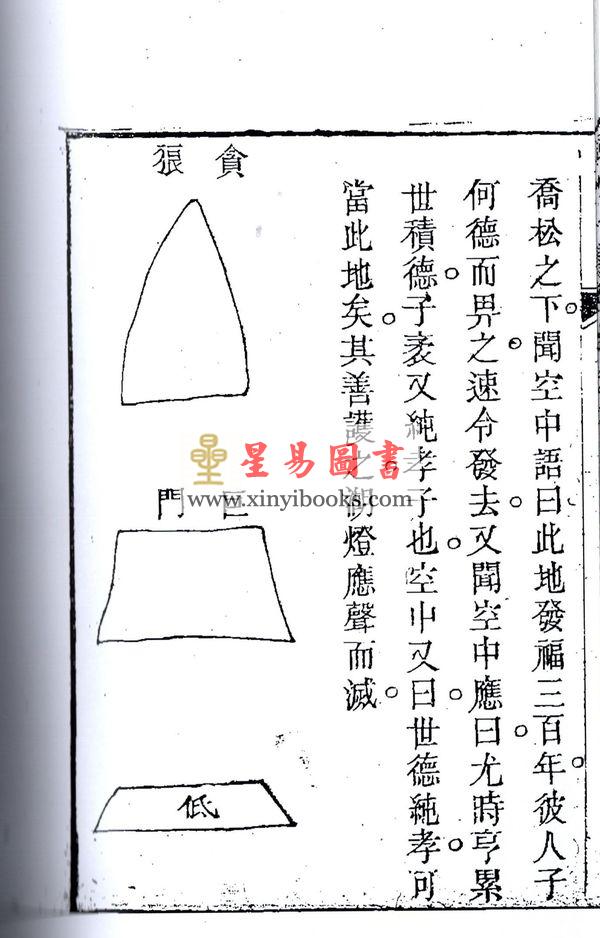 喬松之下聞空中語曰此地發福三百年彼人子
何德而畀之速令發去又聞空中應曰尤時亨累
世積德子袤又純孝子也空中又曰世德純孝可
當此地矣其善護之湖燈應聲而滅
貪狼
巨門
低
星易圖書
www.xinyibooks.com